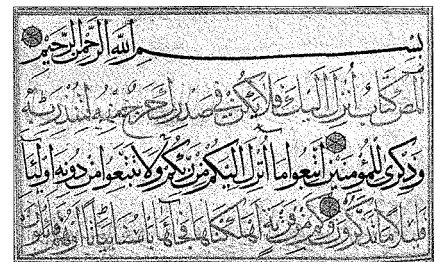 بسم الله الرحمن الرحيم
المص كتاب أنزل إليك فلا يكن في صدرك حرج منه لتنذر به
وذكرى للمؤمنين اتبعوا ما أنزل إليكم من ربكم ولا تتبعوا من دونه أولياء
قليلا ما تذكرون وكم من قرية أهلكناها فجاءها بأسنا بياتا أو هم قائلون